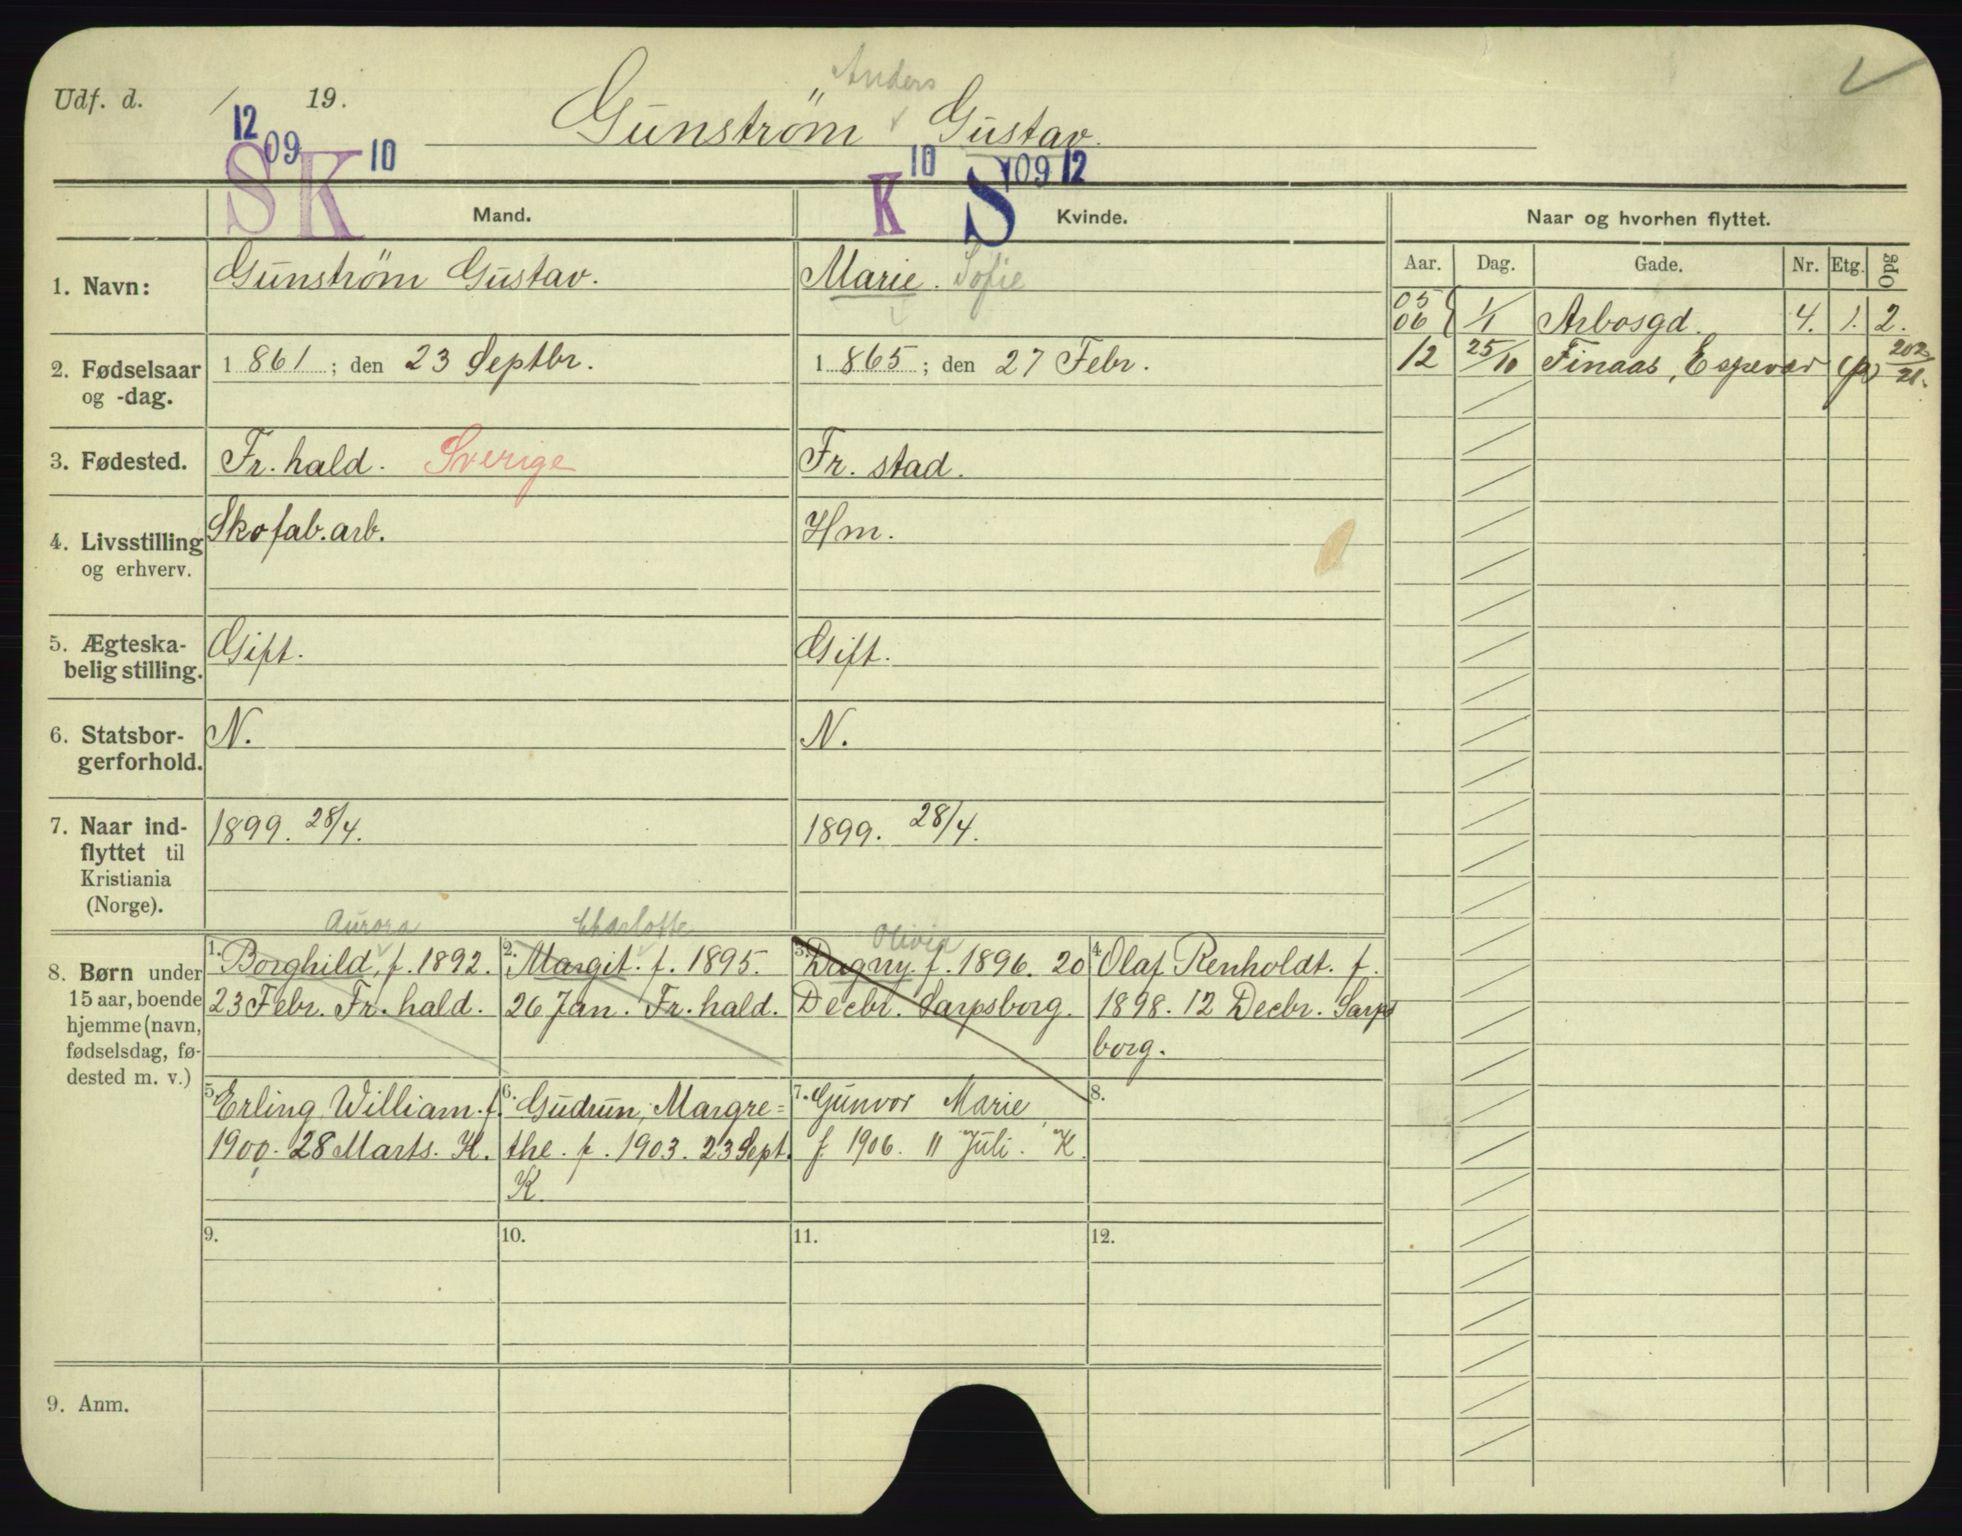 Udf. d. / 19.
Anders
Gunstrøm Gustav.
12 09 10
S K
10 09 12
K S
Mand.
Kvinde.
Naar og hvorhen flyttet.
Aar. Dag. Gade. Nr. Etg. Opg
1. Navn:
Gunstrøm Gustav.
Marie. Sofie
05
06 1/1 Arbosgd. 4. 1. 2.
12 25/10 Finaas, Espevær (p) 202/21.
2. Fødselsaar
og -dag.
1 861 ; den 23 Septbr.
1 865 ; den 27 Febr.
3. Fødested.
Fr. hald. Sverige
Fr. stad.
4. Livsstilling
og erhverv.
Skofab. arb.
Hm.
5. Ægteska-
belig stilling.
Gift.
Gift.
6. Statsbor-
gerforhold.
N.
N.
7. Naar ind-
flyttet til
Kristiania
(Norge).
1899. 28/4.
1899. 28/4.
8. Børn under
15 aar, boende
hjemme (navn,
fødselsdag, fø-
dested m. v.)
Aurora
1. Borghild, f. 1892.
23 Febr. Fr. hald.
Charlotte
2. Margit. f. 1895.
26 Jan. Fr. hald.
Olivia
3. Dagny. f. 1896. 20
Decbr. Sarpsborg.
4. Olaf Renholdt. f.
1898. 12 Decbr. Sarps
borg.
5. Erling William. f.
1900. 28 Marts. K.
6. Gudrun, Margre=
the. f. 1903. 23 Sept.
K.
7. Gunvor Marie
f. 1906. 11 Juli. K.
8.
9.
10.
11.
12.
9. Anm.